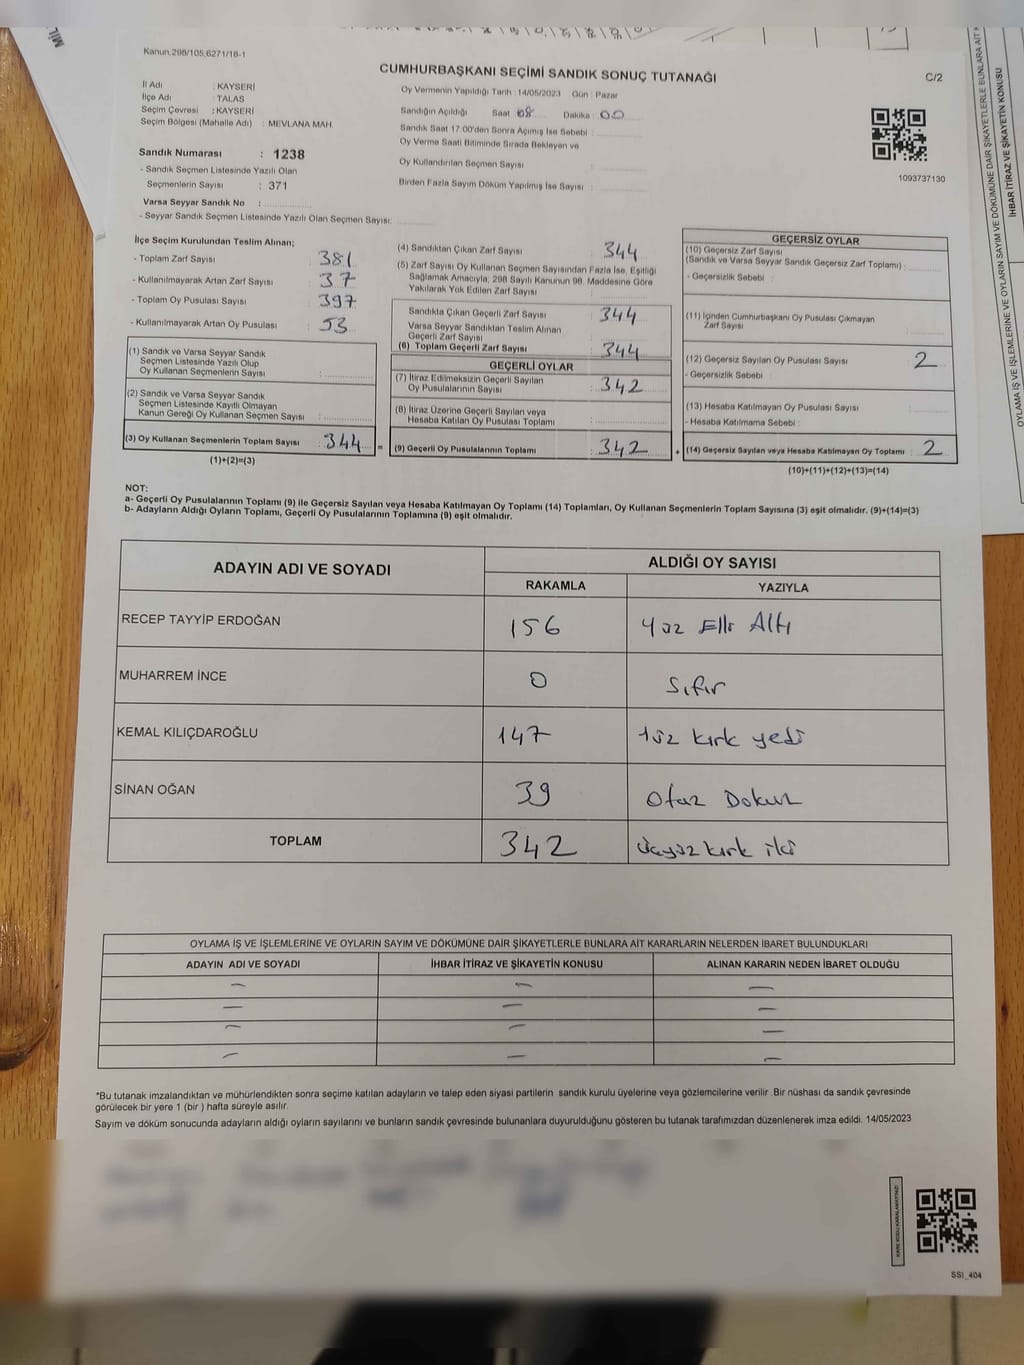 Kanun,298/105,6271/18-1
CUMHURBAŞKANI SEÇİMİ SANDIK SONUÇ TUTANAĞI
C/2
İl Adı : KAYSERİ
İlçe Adı : TALAS
Seçim Çevresi : KAYSERİ
Seçim Bölgesi (Mahalle Adı) : MEVLANA MAH.
Oy Vermenin Yapıldığı Tarih : 14/05/2023 Gün : Pazar
Sandığın Açıldığı Saat 08 Dakika : 00
Sandık Saat 17.00'den Sonra Açımış İse Sebebi :
Oy Verme Saati Bitiminde Sırada Bekleyen ve
Oy Kullandırılan Seçmen Sayısı :
Birden Fazla Sayım Döküm Yapılmış İse Sayısı :
1093737130
Sandık Numarası : 1238
- Sandık Seçmen Listesinde Yazılı Olan
Seçmenlerin Sayısı : 371
Varsa Seyyar Sandık No :
- Seyyar Sandık Seçmen Listesinde Yazılı Olan Seçmen Sayısı:
İlçe Seçim Kurulundan Teslim Alınan;
- Toplam Zarf Sayısı : 381
- Kullanılmayarak Artan Zarf Sayısı : 37
- Toplam Oy Pusulası Sayısı : 397
- Kullanılmayarak Artan Oy Pusulası : 53
(1) Sandık ve Varsa Seyyar Sandık
Seçmen Listesinde Yazılı Olup
Oy Kullanan Seçmenlerin Sayısı :
(2) Sandık ve Varsa Seyyar Sandık
Seçmen Listesinde Kayıtlı Olmayan
Kanun Gereği Oy Kullanan Seçmen Sayısı :
(3) Oy Kullanan Seçmenlerin Toplam Sayısı : 344 =
(1)+(2)=(3)
(4) Sandıktan Çıkan Zarf Sayısı : 344
(5) Zarf Sayısı Oy Kullanan Seçmen Sayısından Fazla İse, Eşitliği
Sağlamak Amacıyla, 298 Sayılı Kanunun 98. Maddesine Göre
Yakılarak Yok Edilen Zarf Sayısı :
Sandıkta Çıkan Geçerli Zarf Sayısı : 344
Varsa Seyyar Sandıktan Teslim Alınan
Geçerli Zarf Sayısı :
(6) Toplam Geçerli Zarf Sayısı : 344
GEÇERLİ OYLAR
(7) İtiraz Edilmeksizin Geçerli Sayılan
Oy Pusulalarının Sayısı : 342
(8) İtiraz Üzerine Geçerli Sayılan veya
Hesaba Katılan Oy Pusulası Toplamı :
(9) Geçerli Oy Pusulalarının Toplamı : 342 +
GEÇERSİZ OYLAR
(10) Geçersiz Zarf Sayısı
(Sandık ve Varsa Seyyar Sandık Geçersiz Zarf Toplamı) :
- Geçersizlik Sebebi :
(11) İçinden Cumhurbaşkanı Oy Pusulası Çıkmayan
Zarf Sayısı :
(12) Geçersiz Sayılan Oy Pusulası Sayısı : 2
- Geçersizlik Sebebi :
(13) Hesaba Katılmayan Oy Pusulası Sayısı :
- Hesaba Katılmama Sebebi :
(14) Geçersiz Sayılan veya Hesaba Katılmayan Oy Toplamı : 2
(10)+(11)+(12)+(13)=(14)
NOT:
a- Geçerli Oy Pusulalarının Toplamı (9) ile Geçersiz Sayılan veya Hesaba Katılmayan Oy Toplamı (14) Toplamları, Oy Kullanan Seçmenlerin Toplam Sayısına (3) eşit olmalıdır. (9)+(14)=(3)
b- Adayların Aldığı Oyların Toplamı, Geçerli Oy Pusulalarının Toplamına (9) eşit olmalıdır.
ADAYIN ADI VE SOYADI ALDIĞI OY SAYISI
RAKAMLA YAZIYLA
RECEP TAYYİP ERDOĞAN 156 Yüz Elli Altı
MUHARREM İNCE 0 Sıfır
KEMAL KILIÇDAROĞLU 147 Yüz kırk yedi
SİNAN OĞAN 39 Otuz Dokuz
TOPLAM 342 Üçyüz kırk iki
OYLAMA İŞ VE İŞLEMLERİNE VE OYLARIN SAYIM VE DÖKÜMÜNE DAİR ŞİKAYETLERLE BUNLARA AİT KARARLARIN NELERDEN İBARET BULUNDUKLARI
ADAYIN ADI VE SOYADI İHBAR İTİRAZ VE ŞİKAYETİN KONUSU ALINAN KARARIN NEDEN İBARET OLDUĞU
— — —
— — —
— — —
— — —
*Bu tutanak imzalandıktan ve mühürlendikten sonra seçime katılan adayların ve talep eden siyasi partilerin sandık kurulu üyelerine veya gözlemcilerine verilir .Bir nüshası da sandık çevresinde
görülecek bir yere 1 (bir ) hafta süreyle asılır.
Sayım ve döküm sonucunda adayların aldığı oyların sayılarını ve bunların sandık çevresinde bulunanlara duyurulduğunu gösteren bu tutanak tarafımızdan düzenlenerek imza edildi. 14/05/2023
SSI_404
MİL
İHBAR İTİRAZ VE ŞİKAYETİN KONUSU